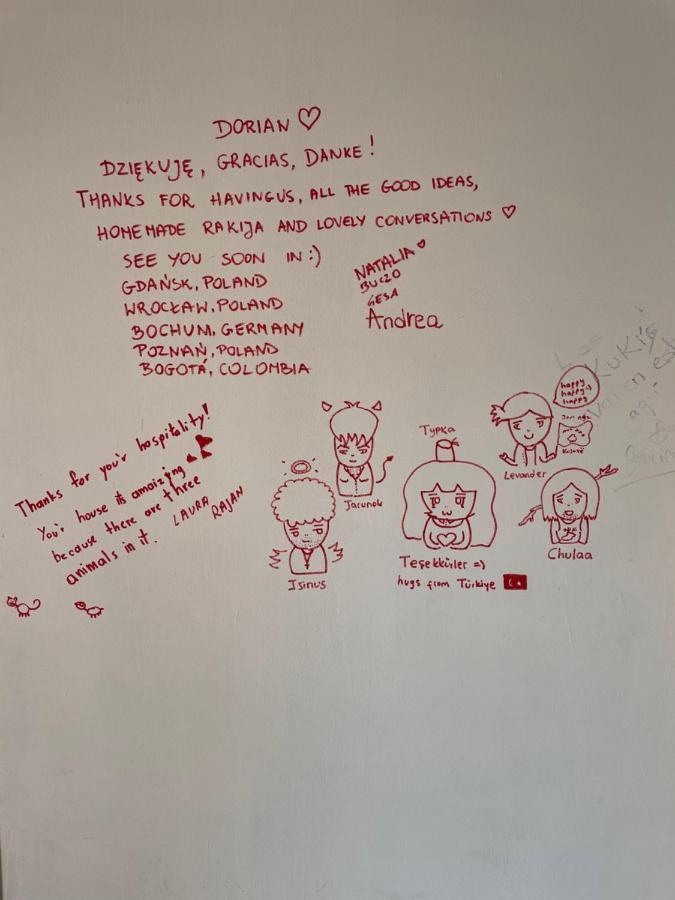 DORIAN ♡
DZIĘKUJĘ, GRACIAS, DANKE!
THANKS FOR HAVING US, ALL THE GOOD IDEAS,
HOMEMADE RAKIJA AND LOVELY CONVERSATIONS ♡
SEE YOU SOON IN :)
GDAŃSK, POLAND
WROCŁAW, POLAND
BOCHUM, GERMANY
POZNAŃ, POLAND
BOGOTÁ, COLOMBIA
NATALIA ♡
GESA
Andrea
Thanks for you'r hospitality!
You'r house is amaizing
because there are three
animals in it.
LAURA
RAJAN
Jarunok
Isinus
Typka
Teşekkürler =)
hugs from Türkiye
happy
happy :)
happy
Levander
Chulaa